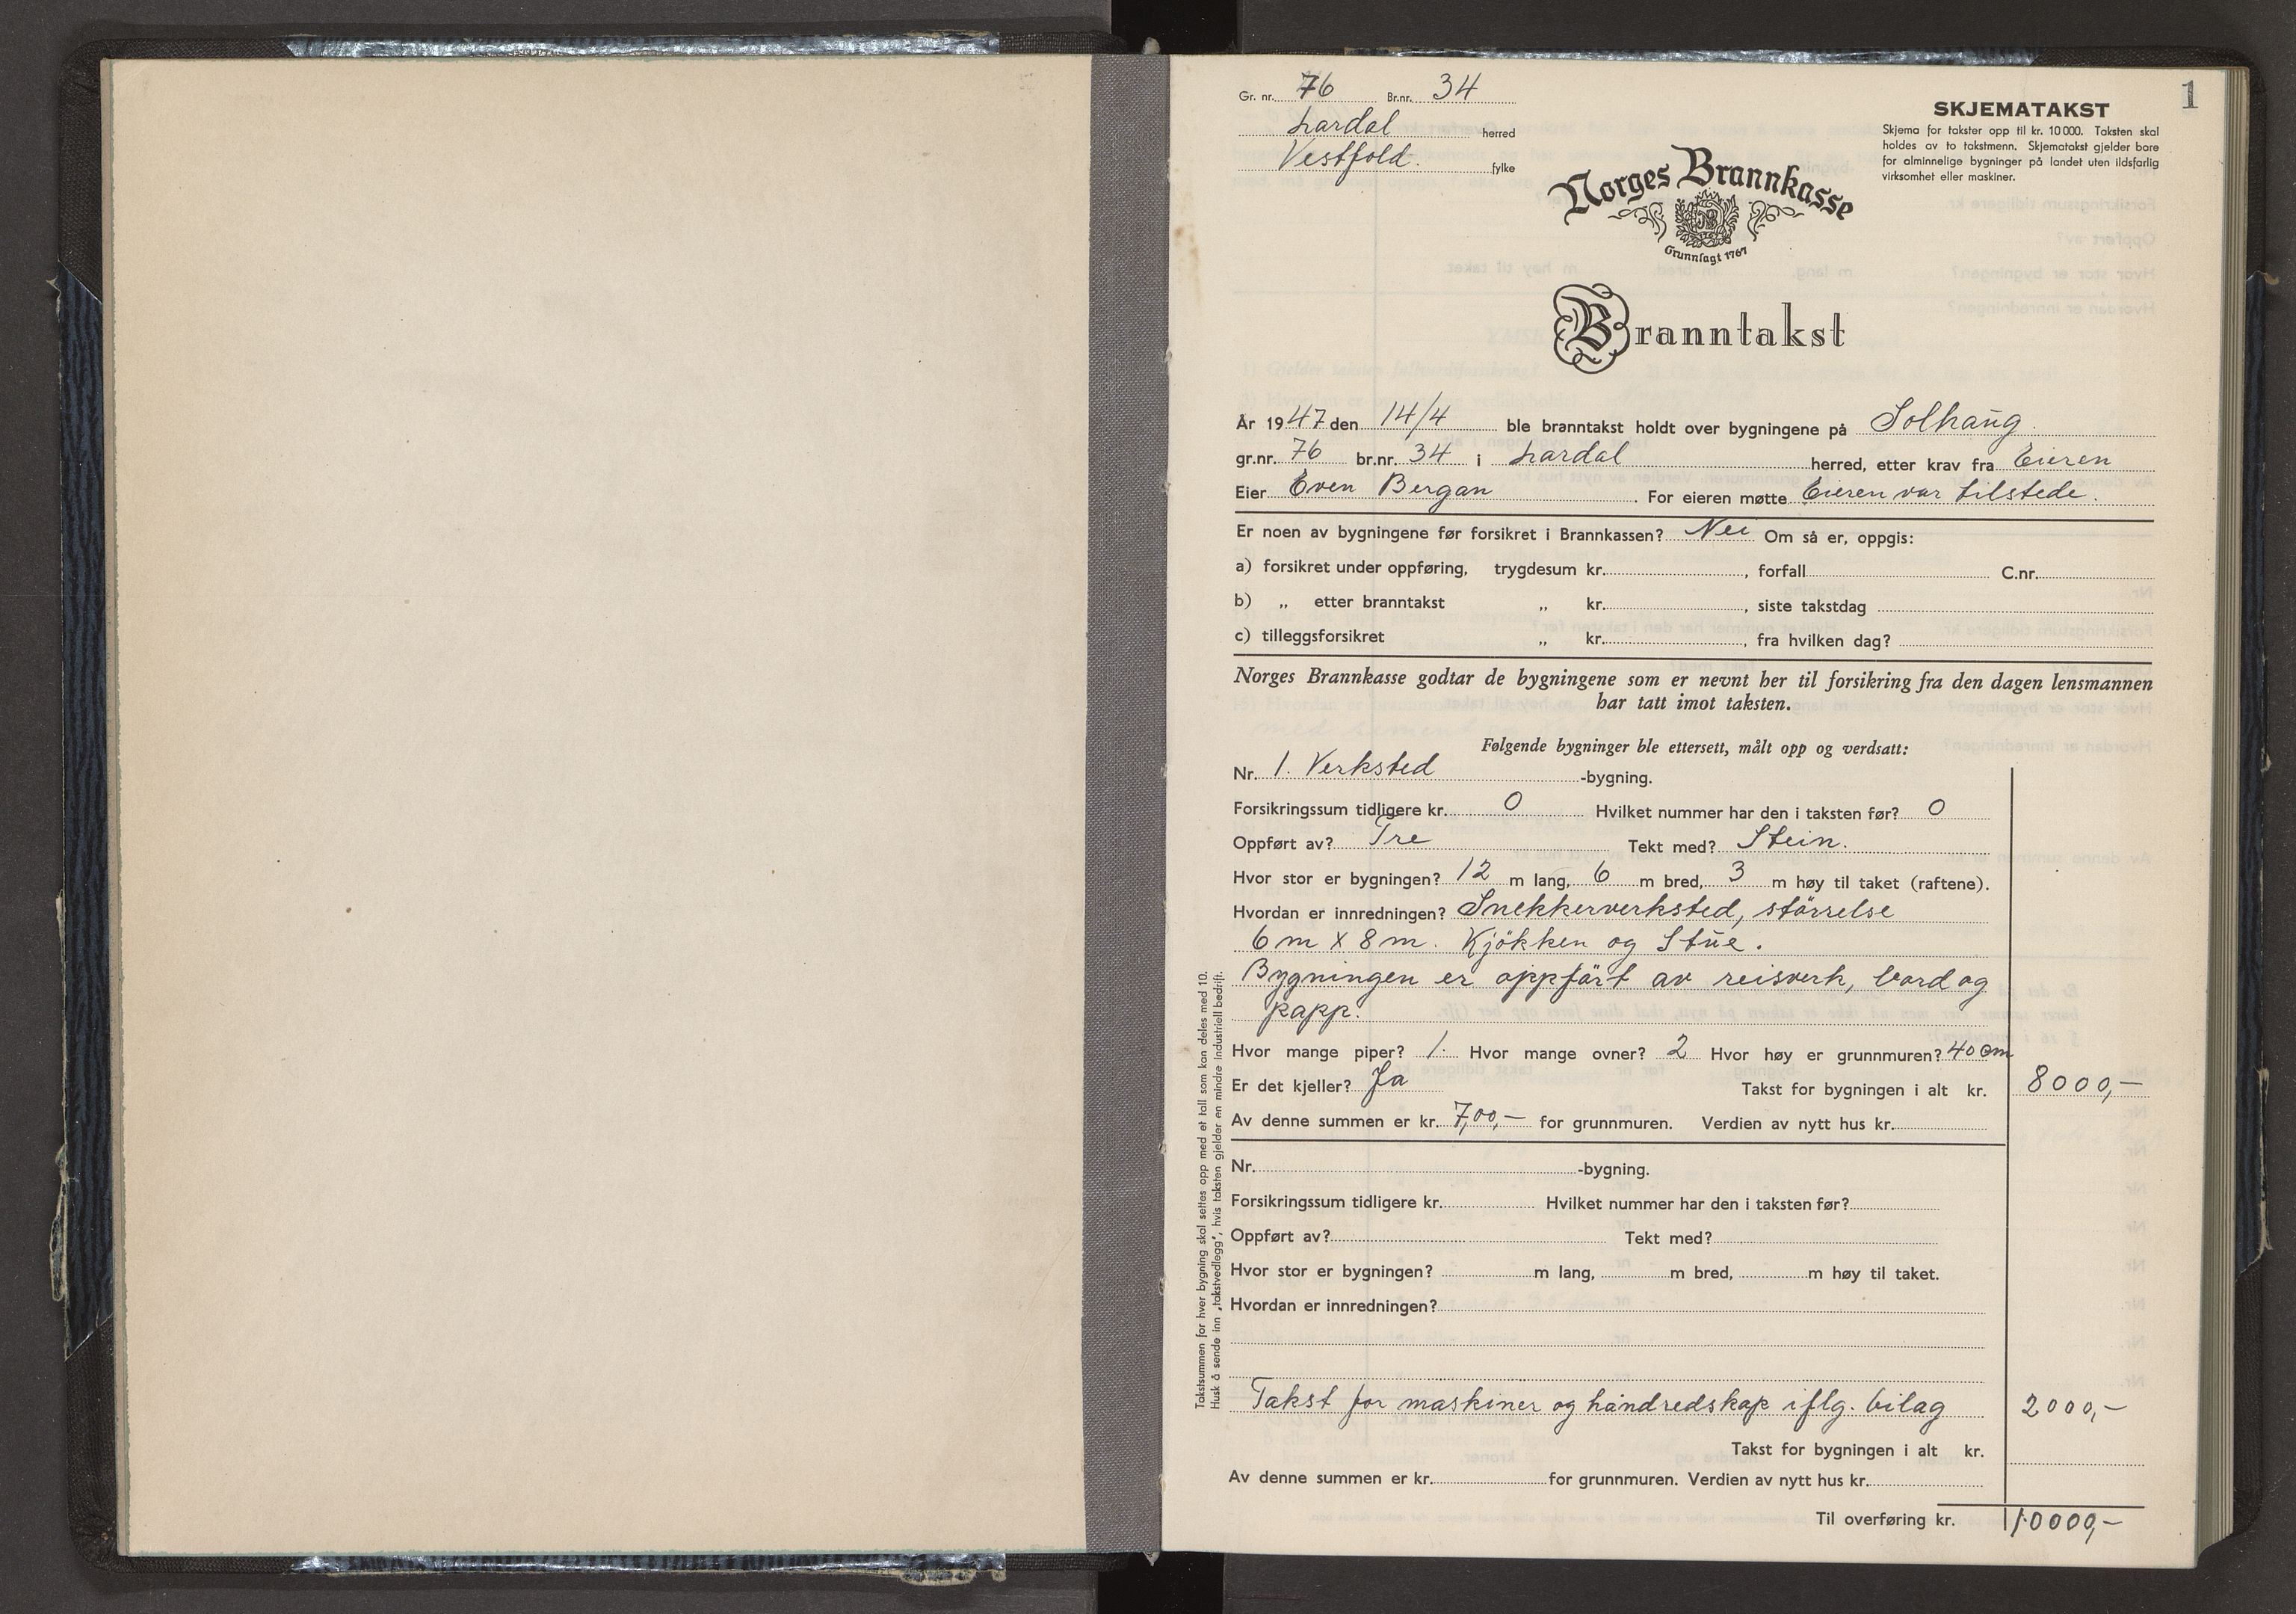 1
Gr. nr. 76 Br.nr. 34
Lardal herred
Vestfold. fylke
SKJEMATAKST
Skjema for takster opp til kr. 10 000. Taksten skal
holdes av to takstmenn. Skjematakst gjelder bare
for alminnelige bygninger på landet uten ildsfarlig
virksomhet eller maskiner.
Norges Brannkasse
Grunnlagt 1767
Branntakst
År 1947 den 14/4 ble branntakst holdt over bygningene på Solhaug.
gr.nr. 76 br.nr. 34 i Lardal herred, etter krav fra Eieren
Eier Even Bergan. For eieren møtte Eieren var tilstede.
Er noen av bygningene før forsikret i Brannkassen? Nei Om så er, oppgis:
a) forsikret under oppføring, trygdesum kr. , forfall C.nr.
b) „ etter branntakst „ kr. , siste takstdag
c) tilleggsforsikret „ kr. , fra hvilken dag?
Norges Brannkasse godtar de bygningene som er nevnt her til forsikring fra den dagen lensmannen
har tatt imot taksten.
Følgende bygninger ble ettersett, målt opp og verdsatt:
Nr. 1. Verksted -bygning.
Forsikringssum tidligere kr. 0 Hvilket nummer har den i taksten før? 0
Oppført av? Tre Tekt med? Stein.
Hvor stor er bygningen? 12 m lang, 6 m bred, 3 m høy til taket (raftene).
Hvordan er innredningen? Snekkerverksted, störrelse
6 m x 8 m. Kjökken og Stue.
Bygningen er oppfört av reisverk, bord og
papp.
Hvor mange piper? 1. Hvor mange ovner? 2 Hvor høy er grunnmuren? 40 cm
Er det kjeller? Ja Takst for bygningen i alt kr. 8000,-
Av denne summen er kr. 7,00,- for grunnmuren. Verdien av nytt hus kr.
Nr. -bygning.
Forsikringssum tidligere kr. Hvilket nummer har den i taksten før?
Oppført av? Tekt med?
Hvor stor er bygningen? m lang, m bred, m høy til taket.
Hvordan er innredningen?
Takst for maskiner og håndredskap iflg. bilag 2000,-
Takst for bygningen i alt kr.
Av denne summen er kr. for grunnmuren. Verdien av nytt hus kr.
Til overføring kr. 10000,-
Takstsummen for hver bygning skal settes opp med et tall som kan deles med 10.
Husk å sende inn „takstvedlegg", hvis taksten gjelder en mindre industriell bedrift.